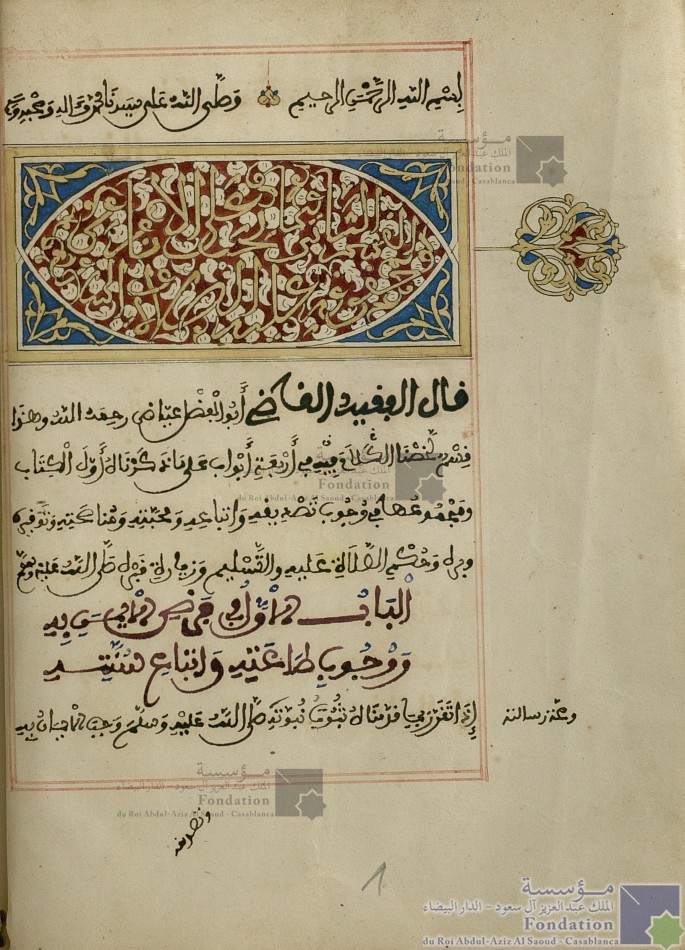 بسم الله الرحمن الرحيم وصلى الله على سيدنا محمد وءاله وصحبه
قال الفقيه القاضي أبو الفضل عياض رحمه الله وهذا
قسم لخصنا الكلام فيه في أربعة أبواب على ما ذكرناه أول الكتاب
ومجموعها في وجوب تصديقه واتباعه ومحبته ومناصحته وتوقيره
وبره وحكم الصلاة عليه والتسليم وزيارة قبره صلى الله عليه وسلم
الباب الأول في فرض الإيمان به
ووجوب طاعته واتباع سنته
إذا تقرر بما قدمناه ثبوت نبوته صلى الله عليه وسلم وجب الإيمان به
وصحة رسالته
وتصديقه
1
مؤسسة
الملك عبد العزيز آل سعود - الدار البيضاء
Fondation
du Roi Abdul-Aziz Al Saoud - Casablanca